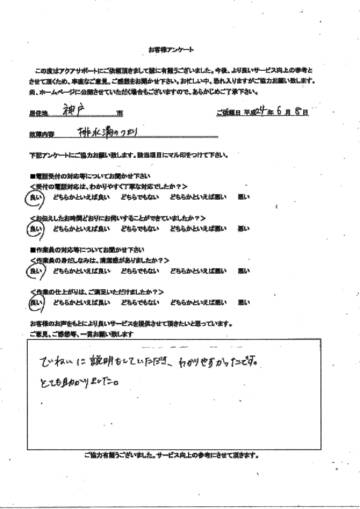 お客様アンケート
この度はアクアサポートにご依頼頂きまして誠に有難うございました。今後、より良いサービス向上の参考と
させて頂くため、率直なご意見、ご感想をお聞かせ下さい。お忙しい中、恐れ入りますがご協力お願い致します。
尚、ホームページに公開させていただく場合もございますので、あらかじめご了承下さい。
居住地 神戸 市 ご依頼日 平成24年6月8日
故障内容 排水溝のつまり
下記アンケートにご協力お願い致します。該当項目にマル印をつけて下さい。
■電話受付の対応等についてお聞かせ下さい
<受付の電話対応は、わかりやすく丁寧な対応でしたか?>
良い どちらかといえば良い どちらでもない どちらかといえば悪い 悪い
<お伝えしたお時間どおりにお伺いすることができていましたか?>
良い どちらかといえば良い どちらでもない どちらかといえば悪い 悪い
■作業員の対応等についてお聞かせ下さい
<作業員の身だしなみは、清潔感がありましたか?>
良い どちらかといえば良い どちらでもない どちらかといえば悪い 悪い
<作業の仕上がりは、ご満足いただけましたか?>
良い どちらかといえば良い どちらでもない どちらかといえば悪い 悪い
お客様のお声をもとにより良いサービスを提供させて頂きたいと思っています。
ご意見、ご感想等、一言お願い致します
ていねいに説明もしていただけ、わかりやすかったです。
とても助かりました。
ご協力有難うございました。サービス向上の参考にさせて頂きます。